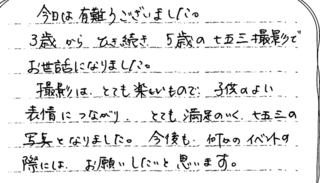 今日は有難うございました。
3歳から ひき続き 5歳の七五三撮影で
お世話になりました。
撮影は、とても楽しいもので、子供のよい
表情につながり、とても満足のいく七五三の
写真となりました。今後も、何かのイベントの
際には、お願いしたいと思います。